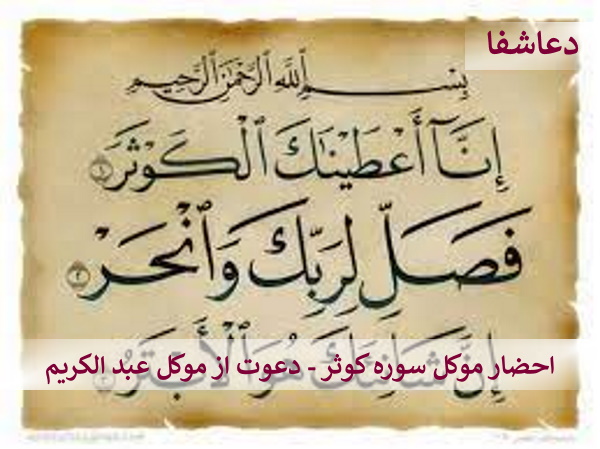 دعاشفا
بِسْمِ ٱللَّهِ ٱلرَّحْمَٰنِ ٱلرَّحِيمِ
إِنَّآ أَعْطَيْنَٰكَ ٱلْكَوْثَرَ ١
فَصَلِّ لِرَبِّكَ وَٱنْحَرْ ٢
إِنَّ شَانِئَكَ هُوَ ٱلْأَبْتَرُ
احضار موکل سوره کوثر - دعوت از موکل عبد الکریم